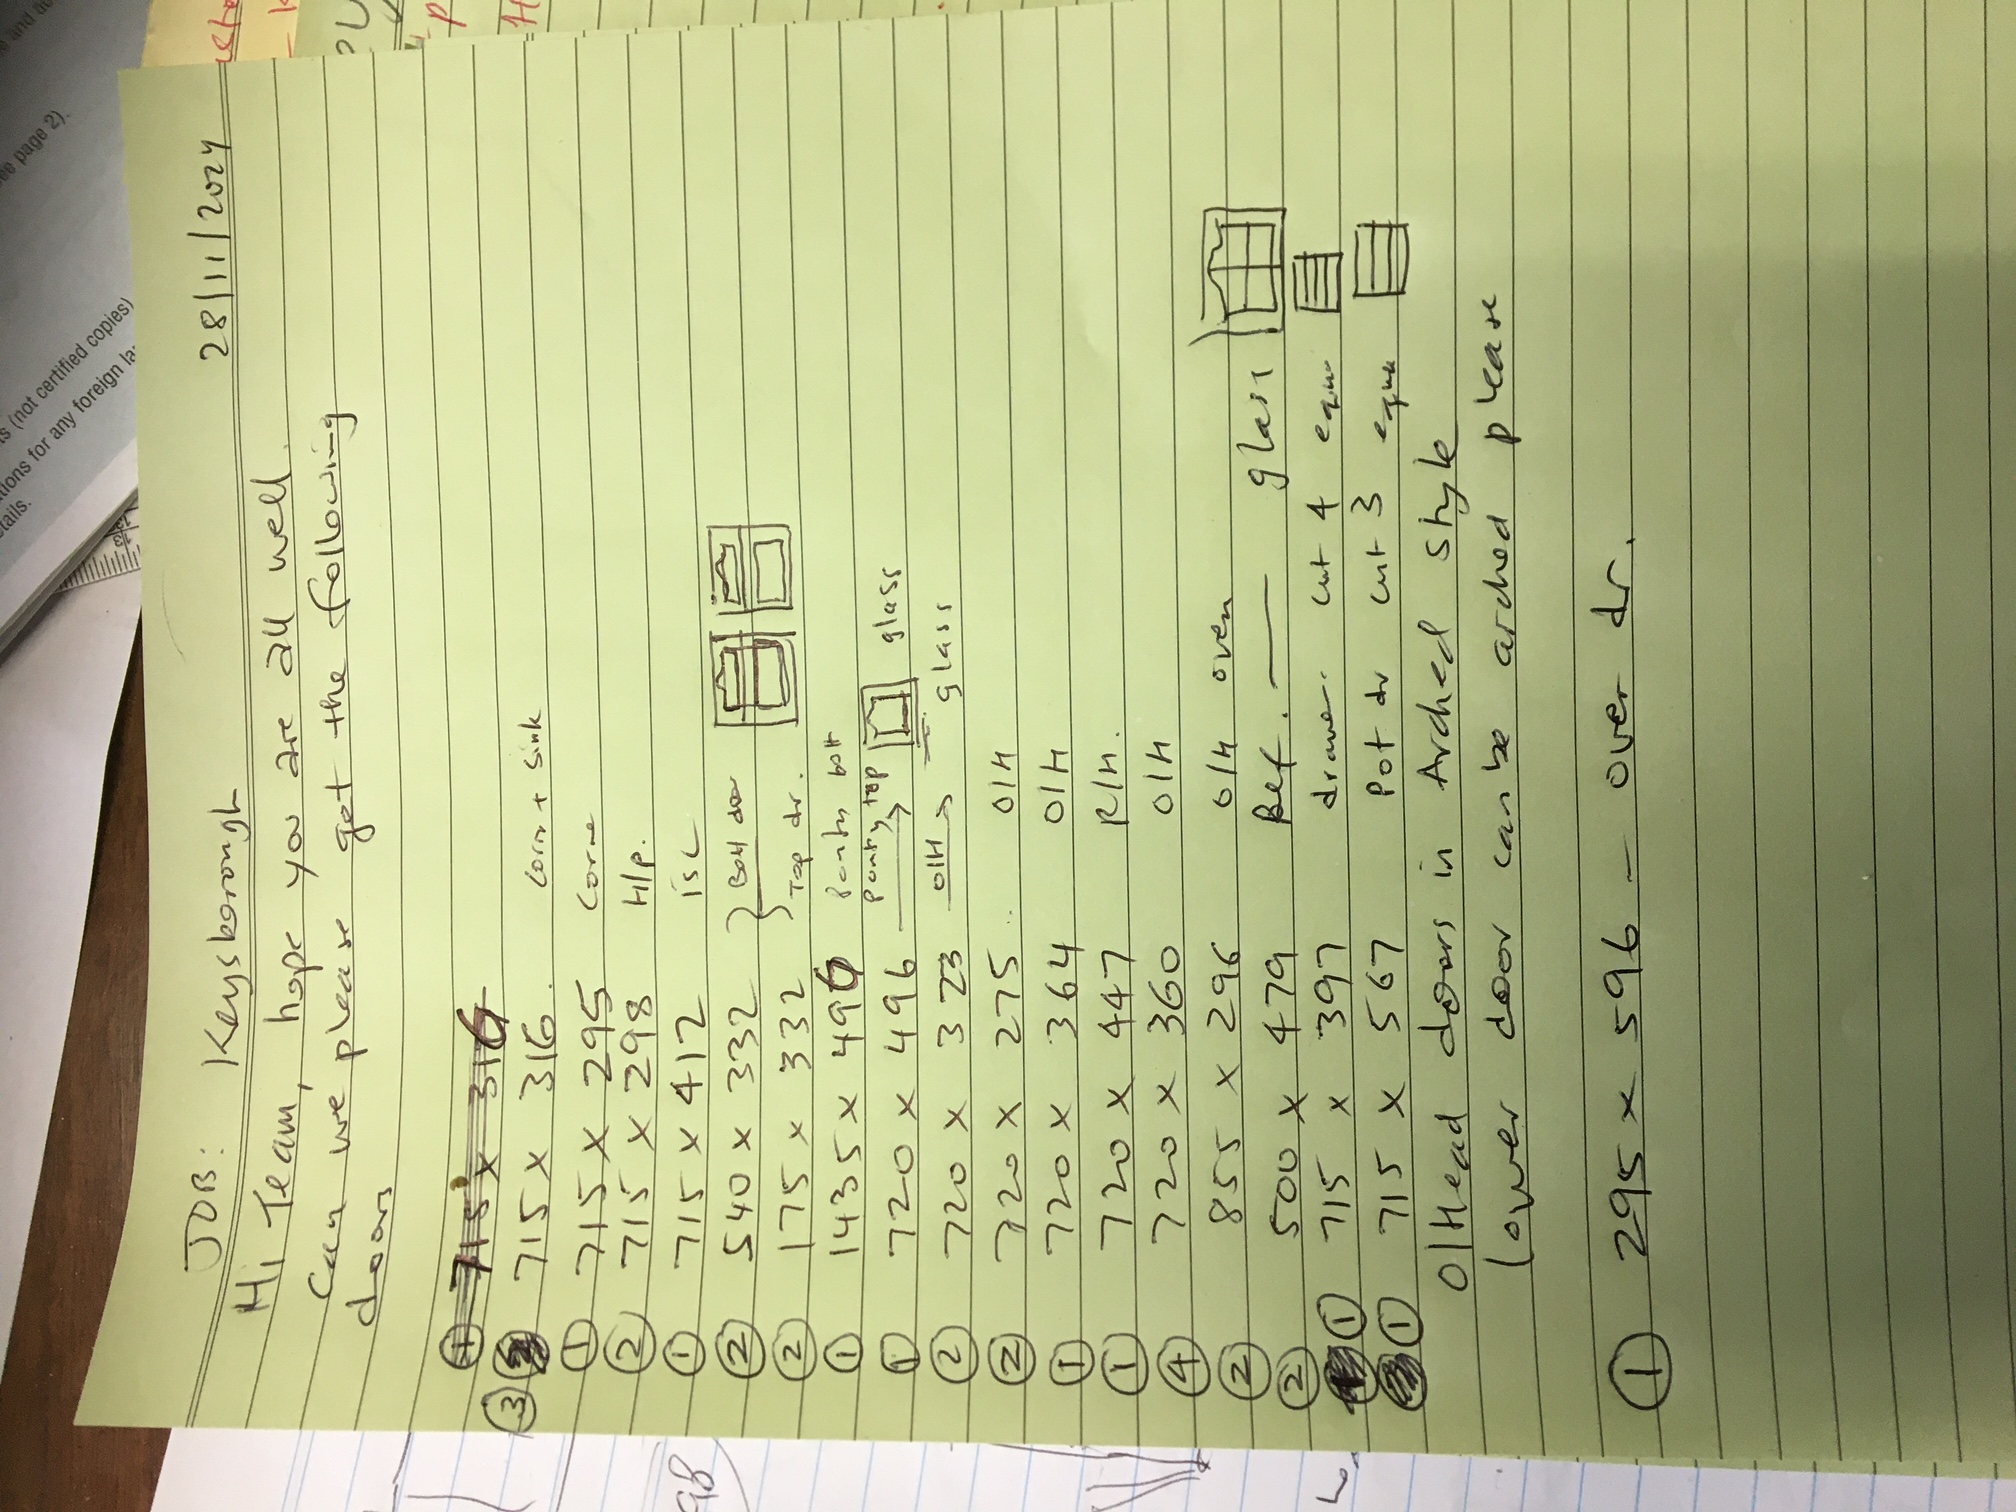 JOB: Keysborough 28/11/2024
Hi Team, hope you are all well.
Can we please get the following
doors
715 x 316
③ 715 x 316. corn + sink
① 715 x 295 corne
② 715 x 298 H/p.
① 715 x 412 isl
② 540 x 332 } Bott dr
② 175 x 332 } Top dr.
① 1435 x 496 pantry bott
① 720 x 496 pantry top glass
② 720 x 323 O/H glass
② 720 x 275 O/H
① 720 x 364 O/H
① 720 x 447 R/H.
④ 720 x 360 O/H
② 855 x 296 O/H oven
② 500 x 479 Ref. glass
① 715 x 397 drawer. cut 4 equa
① 715 x 567 Pot dr cut 3 equa
O/Head doors in Arched style
Lower door can be arched please
① 295 x 596 - over dr.
ee page 2).
s (not certified copies)
tions for any foreign la
etails.
98